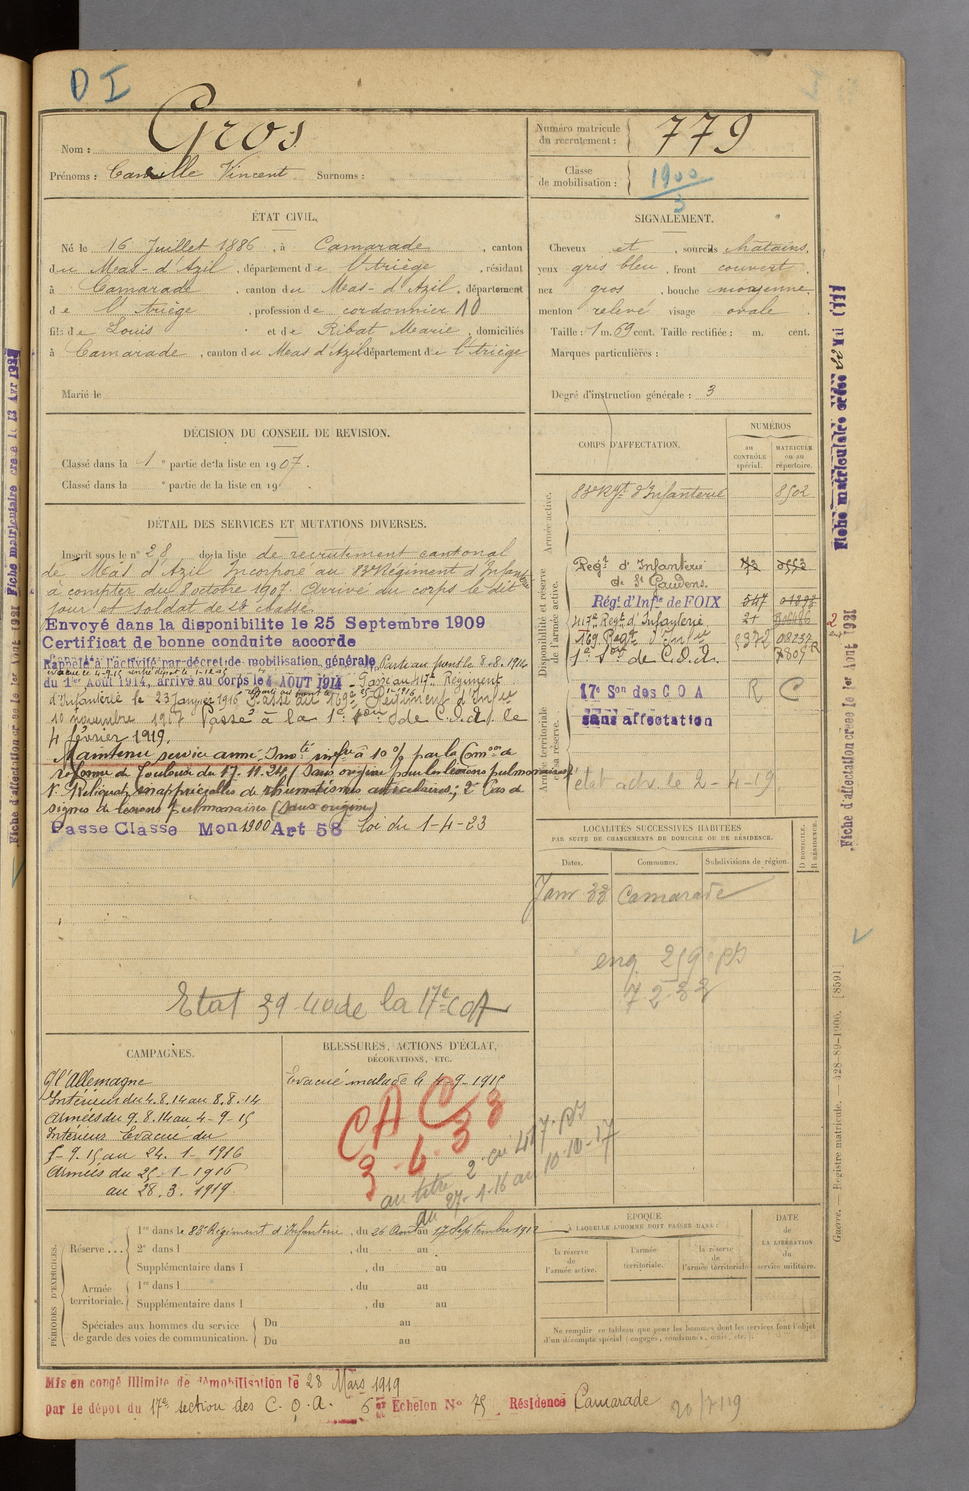 D I
Nom : Gros
Prénoms : Camille Vincent. Surnoms :
Numéro matricule du recrutement : 779
Classe de mobilisation : 1900/3
ÉTAT CIVIL.
Né le 16 Juillet 1886, à Camarade, canton
du Mas-d'Azil, département de l'Ariège, résidant
à Camarade, canton du Mas-d'Azil, département
de l'Ariège, profession de cordonnier 10
fils de Louis et de Ribat Marie, domiciliés
à Camarade, canton du Mas d'Azil département de l'Ariège
Marié le
SIGNALEMENT.
Cheveux et, sourcils chatains,
yeux gris bleu, front couvert
nez gros, bouche moyenne,
menton relevé visage ovale.
Taille : 1 m. 69 cent. Taille rectifiée : m. cent.
Marques particulières :
Degré d'instruction générale : 3
DÉCISION DU CONSEIL DE REVISION.
Classé dans la 1e partie de la liste en 1907.
Classé dans la e partie de la liste en 19 .
DÉTAIL DES SERVICES ET MUTATIONS DIVERSES.
Inscrit sous le n° 28 de la liste de recrutement cantonal
de Mas d'Azil Incorporé au 83e Régiment d'Infanterie
à compter du 8 octobre 1907. Arrivé au corps le dit
jour et soldat de 2e classe
Envoyé dans la disponibilite le 25 Septembre 1909
Certificat de bonne conduite accorde
Rappelé à l'activité par décret de mobilisation générale
du 1er Août 1914, arrivé au corps le 4 AOUT 1914. Passé au 417e Régiment
d'Infanterie le 23 Janvier 1916 Passé au 169e Régiment d'Infie
10 novembre 1917 Passé à la 1e Son de C.O.A. le
4 février 1919.
Maintenu service armé. Imoté infre à 10 % par la Comon de
réforme de Toulouse du 17.11.24 (Sans origine pour les lésions pulmonaires)
1° Reliquats inappréciables de rhumatismes articulaires; 2° Pas de
signes de lésions pulmonaires (sans origine)
Passe Classe Mon 1900 Art 58 loi du 1-4-23
Etat 39-40 de la 17e COA
CORPS D'AFFECTATION.
NUMÉROS
AU CONTRÔLE spécial.
MATRICULE ou au répertoire.
Armée active.
83e Rgt d'Infanterie 8502
Disponibilité et réserve de l'armée active.
Régt d'Infanterie de St Gaudens.
Régt d'Infie de FOIX 547
417e Régt d'Infanterie
169 Regt d'Infie
1e Son de C.O.A.
Armée territoriale et sa réserve.
17e Son des C O A R C
sans affectation
état actv. le 2-4-19.
LOCALITÉS SUCCESSIVES HABITÉES
PAR SUITE DE CHANGEMENTS DE DOMICILE OU DE RÉSIDENCE.
Dates. Communes. Subdivisions de région. D DOMICILE. R RÉSIDENCE.
Janv 33 Camarade
CAMPAGNES.
C/ l'Allemagne
Intérieur du 4.8.14 au 8.8.14
Armées du 9.8.14 au 4-9-15
Intérieur Evacué du
5-9.15 au 24.1-1916
Armées du 25-1-1916
au 28.3.1919.
BLESSURES, ACTIONS D'ÉCLAT, DÉCORATIONS, ETC.
Evacué malade le 4-9-1915
CAC 33
3-6-33
au titre 2. au 417. ps
du 27-1-16 au 10-10-17
PÉRIODES D'EXERCICES.
Réserve ... 1re dans le 83e Régiment d'Infanterie, du 26 Août au 17 Septembre 1912
2e dans l , du au
Supplémentaire dans l , du au
Armée territoriale. 1re dans l , du au
Supplémentaire dans l , du au
Spéciales aux hommes du service de garde des voies de communication. Du au
Du au
ÉPOQUE
À LAQUELLE L'HOMME DOIT PASSER DANS :
la réserve de l'armée active.
l'armée territoriale.
la réserve de l'armée territoriale
DATE de LA LIBÉRATION du service militaire.
Ne remplir ce tableau que pour les hommes dont les services font l'objet
d'un décompte spécial (engagés, condamnés, omis, etc.).
Mis en congé illimité de démobilisation le 28 Mars 1919
par le dépot du 17e section des C.O.A. 6e Echelon N° 75 Résidence Camarade
Fiche matriculaire créée le
Fiche d'affectation creee le 1er Aout 1931
Guerre. — Registre matricule. — 428-89-1906. [8591]